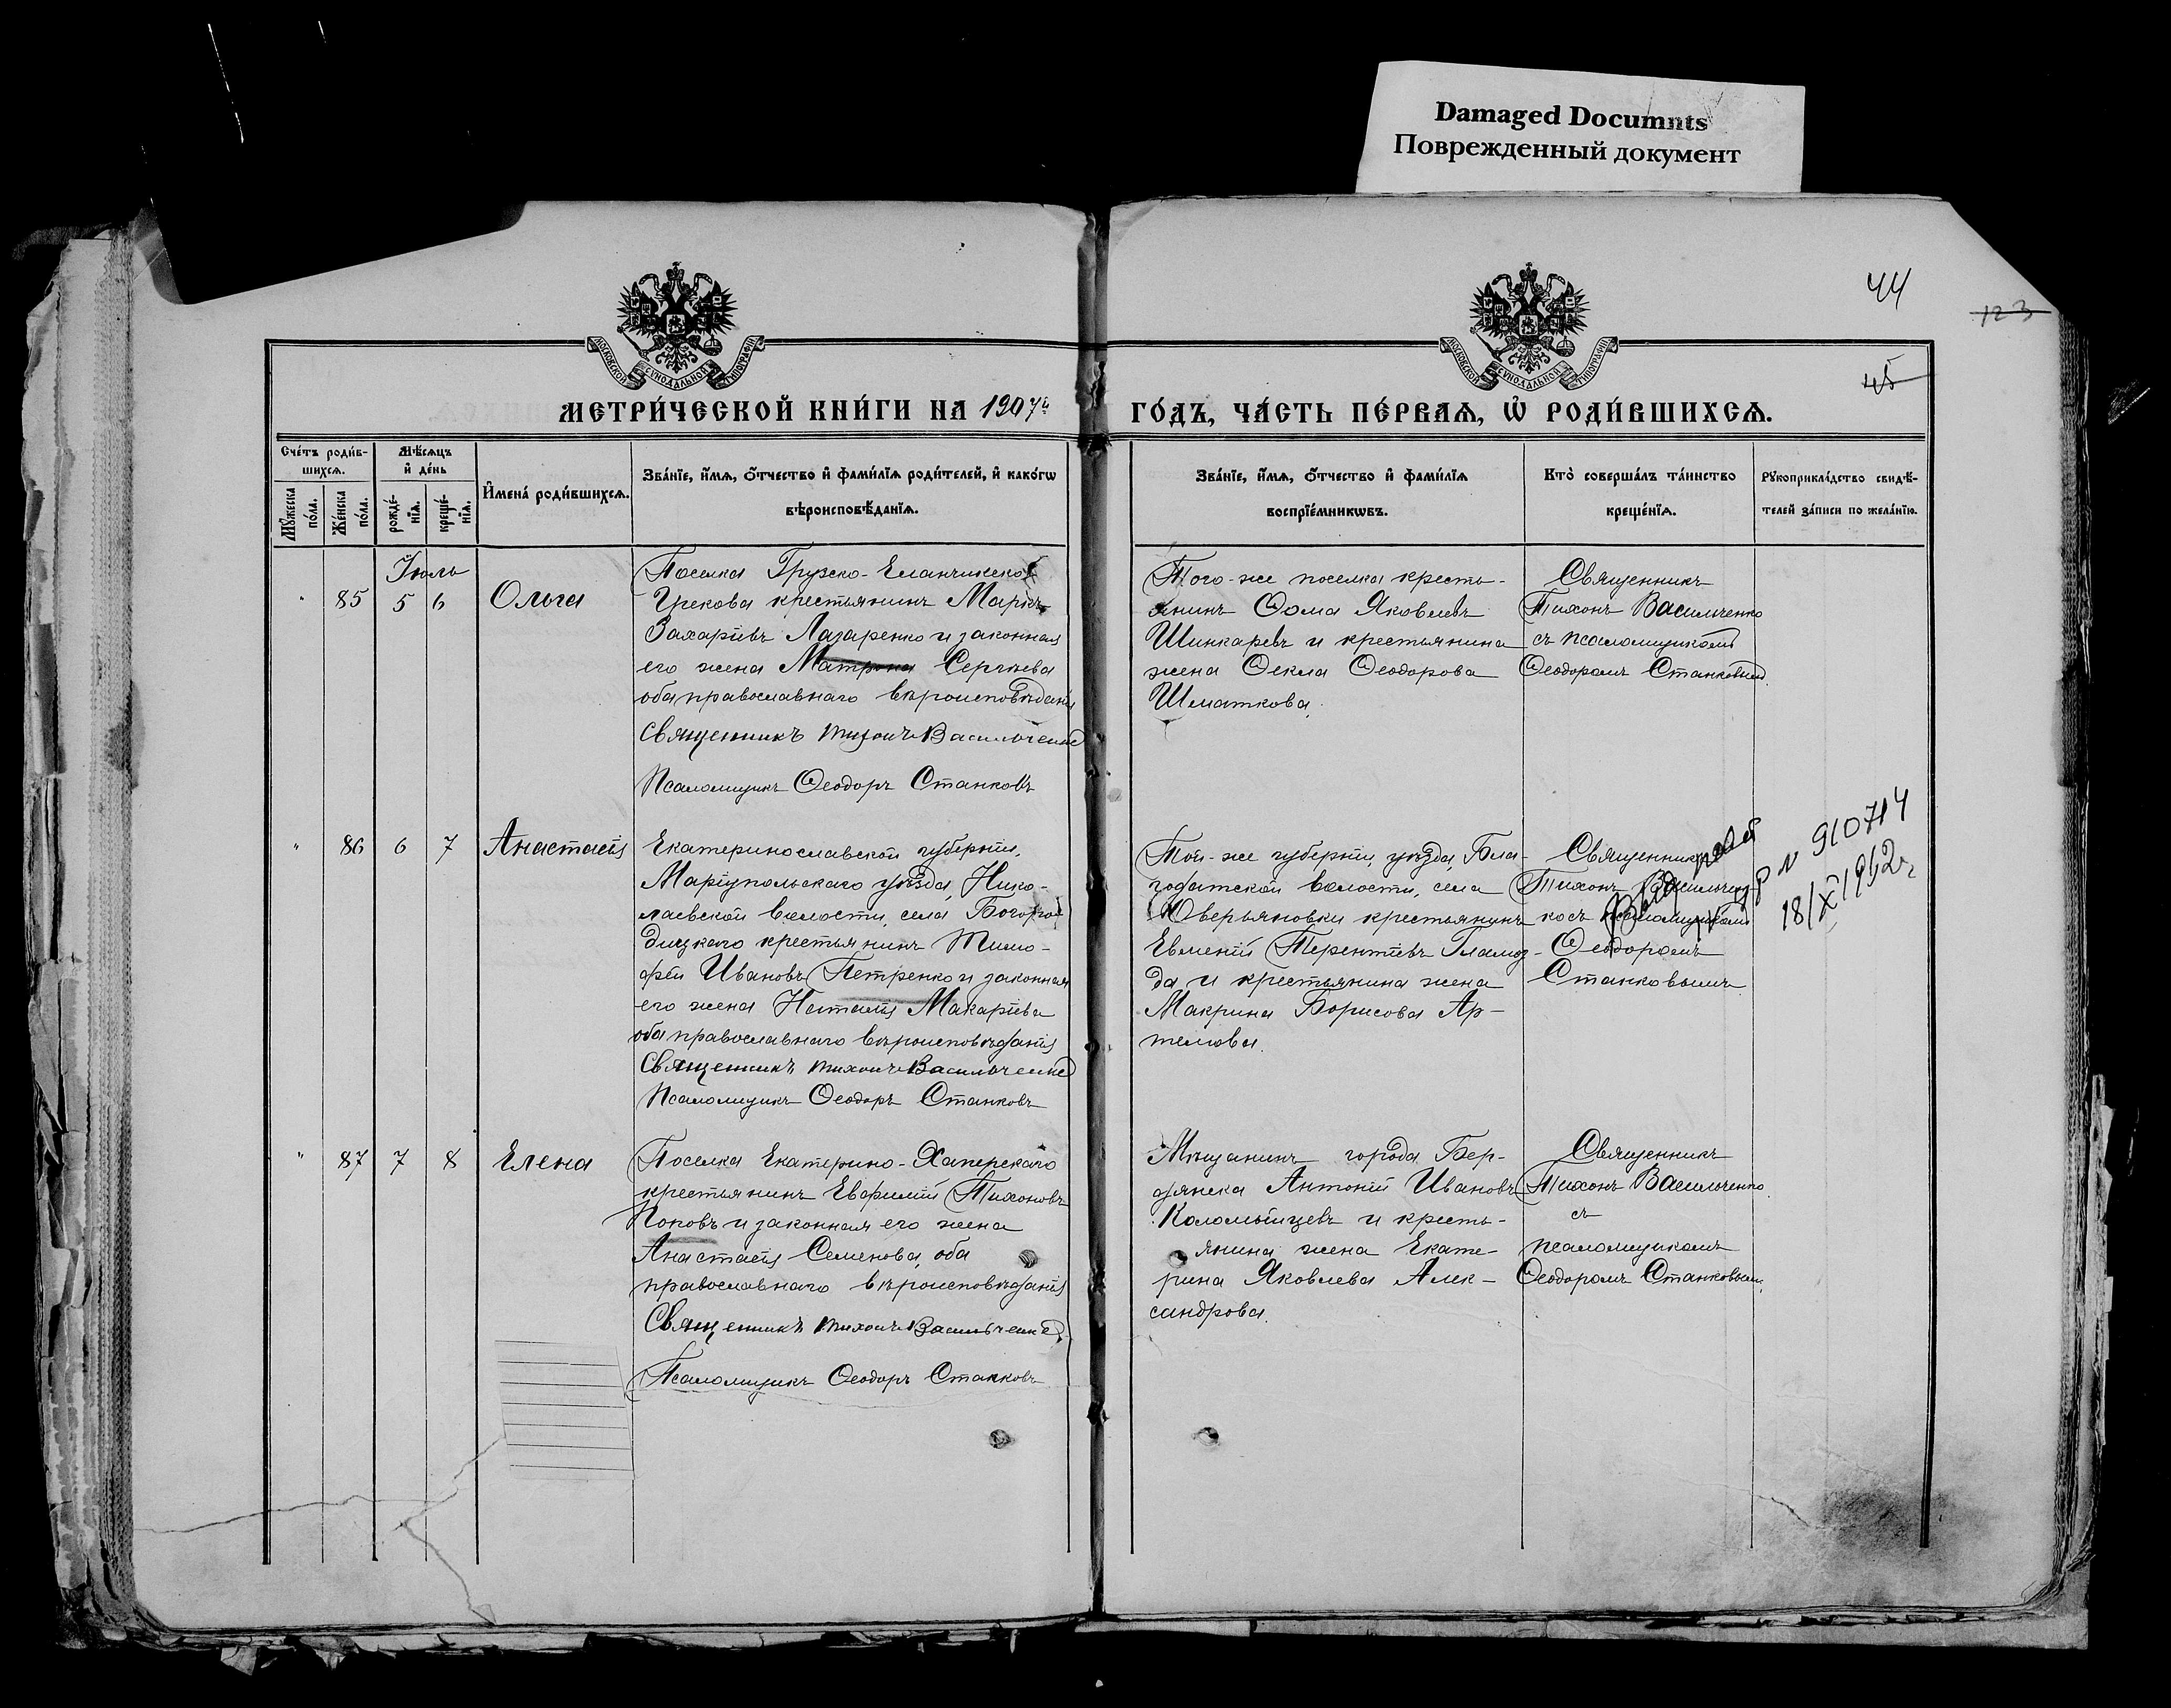 Damaged Documnts
Поврежденный документ
44
123
45
МОСКОВСКОЙ СѴНОДАЛЬНОЙ ТИПОГРАФІИ
МОСКОВСКОЙ СѴНОДАЛЬНОЙ ТИПОГРАФІИ
МЕТРИ́ЧЕСКОЙ КНИ́ГИ НА 1907й
ГО́ДЪ, ЧА́СТЬ ПЕ́РВАѦ, Ѡ҆ РОДИ́ВШИХСѦ.
Сче́тъ роди́в-
шихсѧ.
Мѣ́сѧцъ
и҆ де́нь
Мꙋ́жеска
по́ла.
Же́нска
по́ла.
рожде́-
нїѧ.
креще́-
нїѧ.
И҆мена̀ роди́вшихсѧ.
Зва́нїе, и҆́мѧ, ѻ҆́тчество и҆ фами́лїѧ роди́телей, и҆ како́гѡ
вѣроисповѣ́данїѧ.
Зва́нїе, и҆́мѧ, ѻ҆́тчество и҆ фами́лїѧ
воспрїе́мникѡвъ.
Кто̀ соверша́лъ та́инство
креще́нїѧ.
Рꙋкоприкла́дство свидѣ́-
телей за́писи по жела́нїю.
Іюль
" 85 5 6 Ольга
Поселка Грузско-Еланчикско
Грекова крестьянинъ Маркъ
Захаріевъ Лазаренко и законная
его жена Матрона Сергѣева
оба православнаго вѣроисповѣданія
Священникъ Тихонъ Васильченко
Псаломщикъ Ѳеодоръ Станковъ
Того-же поселка кресть-
янинъ Ѳома Яковлевъ
Шинкаревъ и крестьянина
жена Ѳекла Ѳеодорова
Шматкова.
Священникъ
Тихонъ Васильченко
съ псаломщикомъ
Ѳеодоромъ Станковымъ.
" 86 6 7 Анастасія
Екатеринославской губерніи,
Маріупольскаго уѣзда, Нико-
лаевской волости, села Богоро
дицкаго крестьянинъ Тимо-
фей Ивановъ Петренко и законная
его жена Наталія Макаріева
оба православнаго вѣроисповѣданія
Священникъ Тихонъ Васильченко
Псаломщикъ Ѳеодоръ Станковъ
Той-же губерніи, уѣзда, Бла-
годатской волости, села
крестьянинъ
Евменій Терентіевъ
да и крестьянина жена
Макрина Борисова Ар-
темова.
Священникъ
Тихонъ Васильчен-
ко съ псаломщикомъ
Ѳеодоромъ
Станковымъ.
№ 910714
18/X 1952г
" 87 7 8 Елена
Поселка Екатерино-Хаперскаго
крестьянинъ Евфимій Тихоновъ
Поповъ и законная его жена
Анастасія Семенова, оба
православнаго вѣроисповѣданія
Священникъ Тихонъ Васильченко
Псаломщикъ Ѳеодоръ Станковъ
Мѣщанинъ города Бер-
дянска Антоній Ивановъ
Коломыйцевъ и кресть-
янина жена Екате-
рина Яковлева Алек-
сандрова.
Священникъ
Тихонъ Васильченко
съ
псаломщикомъ
Ѳеодоромъ Станковымъ.